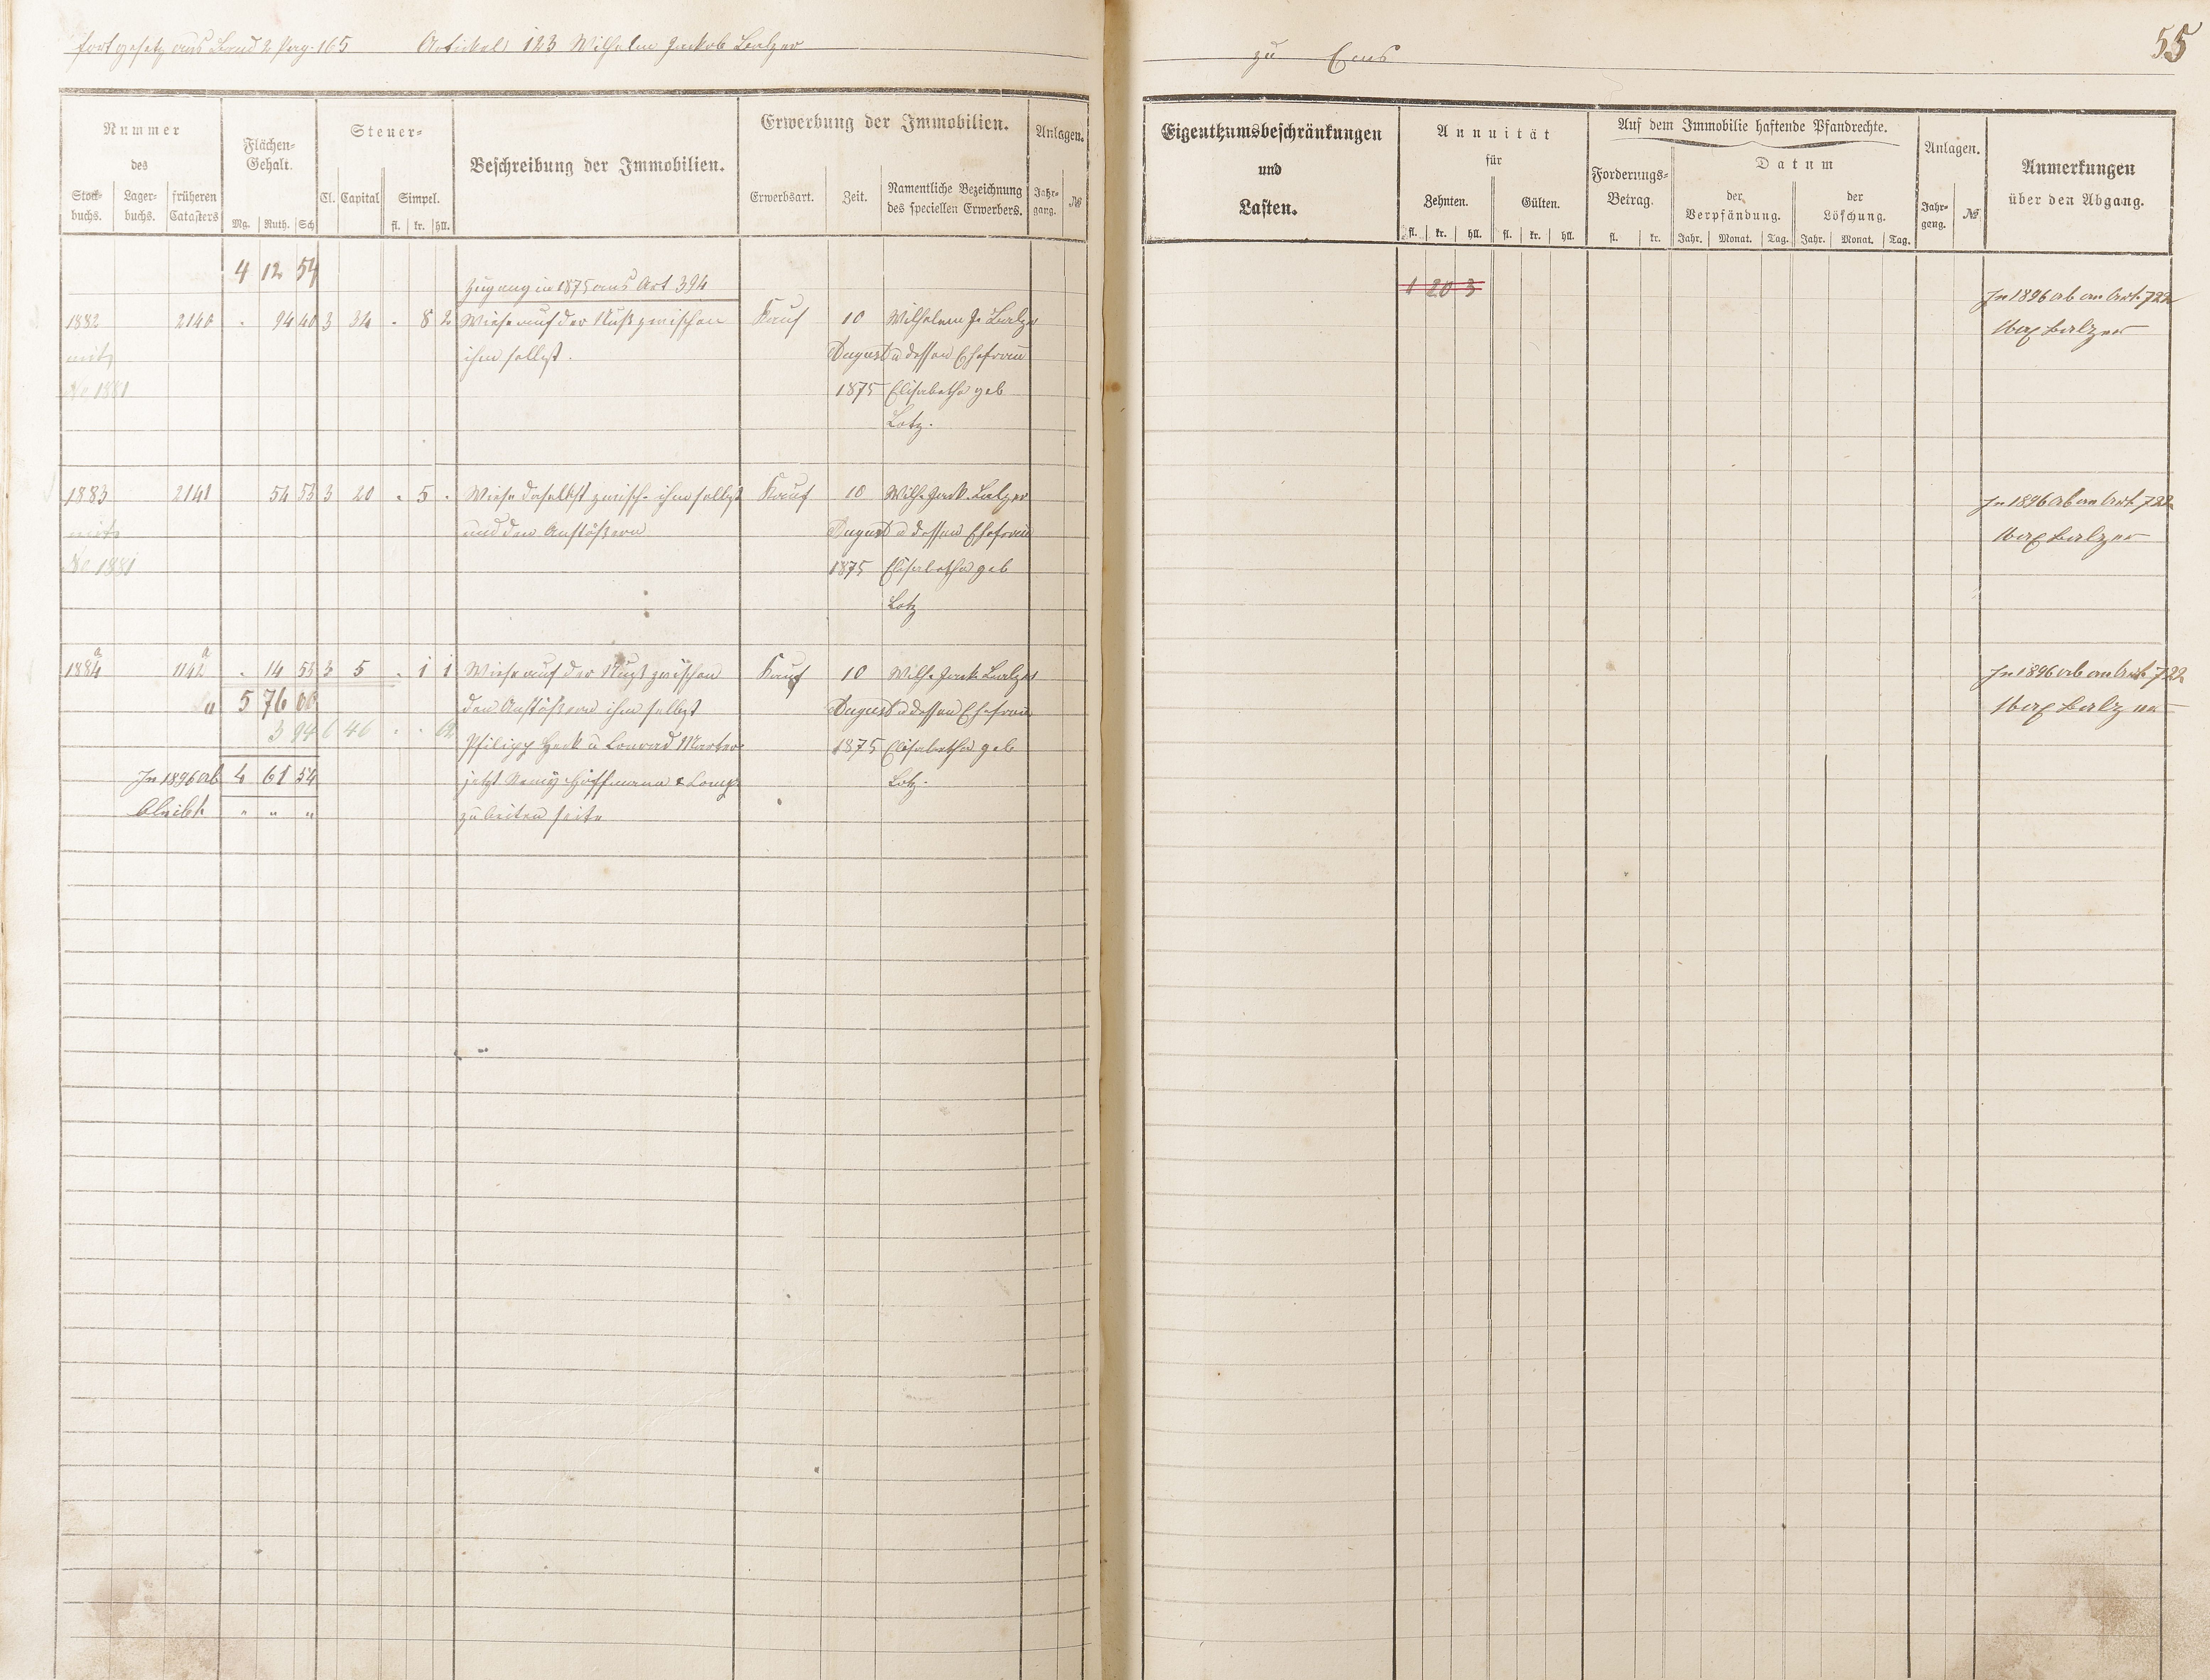 fortgesetz aus Band 2 Pag. 165 Artikel 123 Wilhelm Jackob Balzer
zu Ems
55
Nummer
des
Stock-buchs. Lager-buchs. früheren Catasters
Flächen-Gehalt.
Mg. Ruth. Sch
Steuer-
Cl. Capital Simpel.
fl. kr. hll.
Beschreibung der Immobilien.
Erwerbung der Immobilien.
Erwerbsart. Zeit. Namentliche Bezeichnung des speciellen Erwerbers.
Anlagen.
Jahr-gang. №
Eigenthumsbeschränkungen
und
Lasten.
Annuität
für
Zehnten. Gülten.
fl. kr. hll. fl. kr. hll.
Auf dem Immobilie haftende Pfandrechte.
Forderungs-Betrag.
fl. kr.
Datum
der Verpfändung. der Löschung.
Jahr. Monat. Tag. Jahr. Monat. Tag.
Anlagen.
Jahr-gang. №
Anmerkungen
über den Abgang.
4 12 54
Zugang in 1875 aus Art 394
1 20 3
1882 2140 . 94 40 3 34 . 8 2 Wiese auf der zwischen Kauf 10 Wilhelm J. Balzer In 1896 ab an Art. 722
mit ihm selbst. August u dessen Ehefrau Max Balzer
No 1881 1875 Elisabetha geb
Lotz.
1883 2141 54 53 3 20 . 5 . Wiese daselbst zwisch. ihm selbst Kauf 10 Wilh. Jack. Balzer In 1896 ab an Art. 722
mit und den Anstößern August u dessen Ehefrau Max Balzer
No 1881 1875 Elisabetha geb
Lotz
1884 a 1142 a . 14 53 3 5 . 1 1 Wiese auf der zwischen Kauf 10 Wilh. Jack Balzer In 1896 ab an Art. 722
5 76 00 den Anstößern ihm selbst August u dessen Ehefrau Max Balzer
3 94 6 46 Philipp Heck u Conrad 1875 Elisabetha geb
In 1896 ab 4 61 54 jetzt Höffmann & Comp. Lotz.
bleibt " " " zu beiden seite